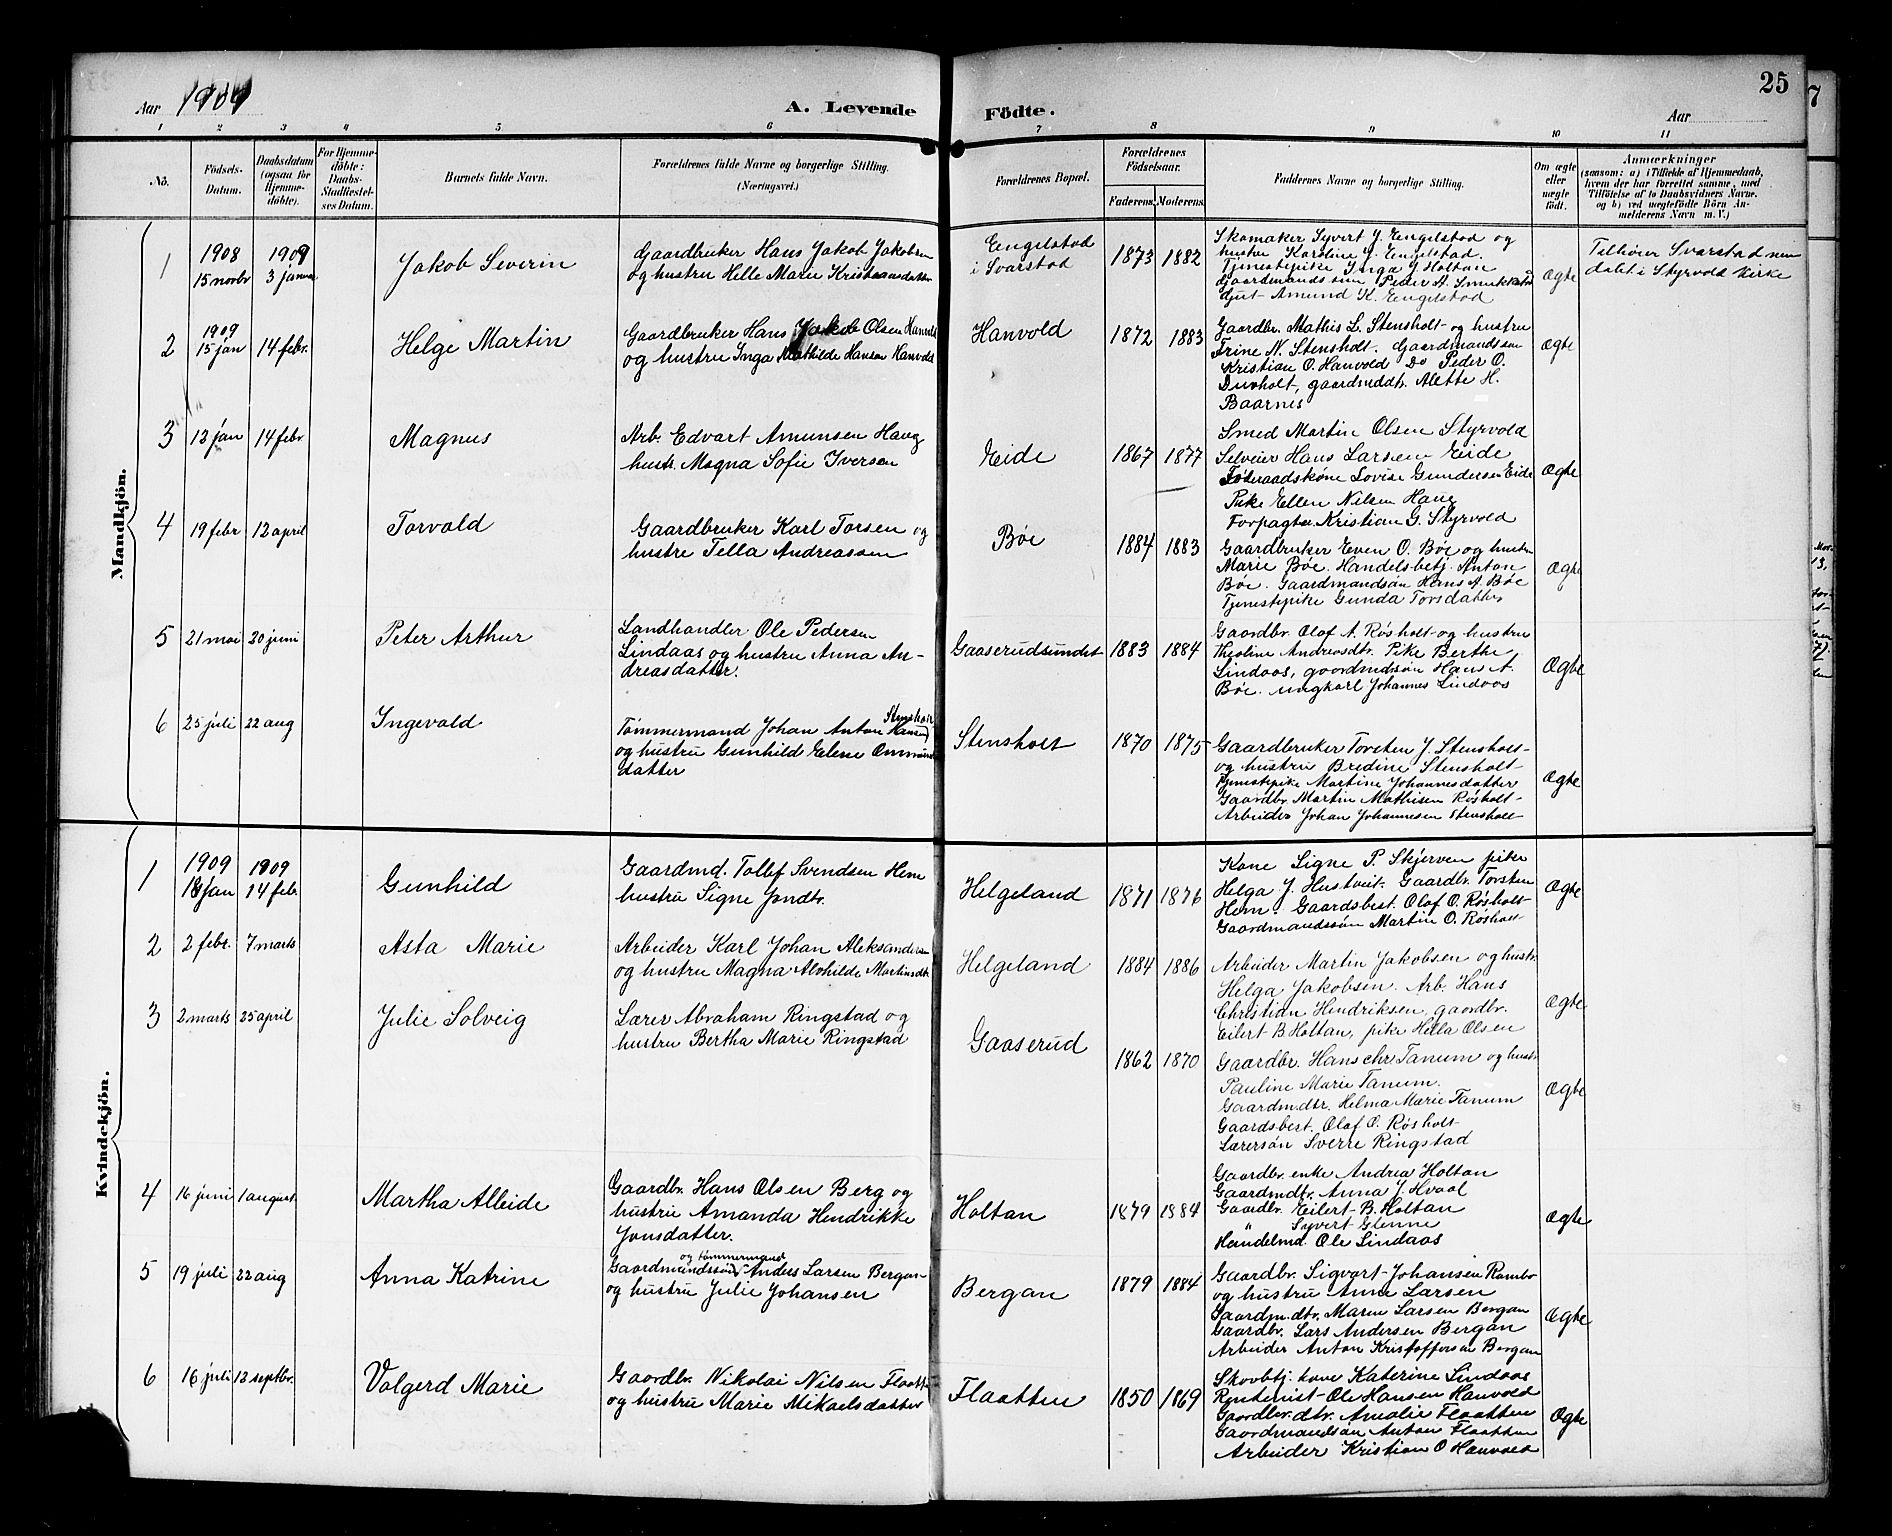 25
Aar 1909
A. Levende
Födte.
Aar
1 2 3 4 5 6 7 8 9 10 11
No.
Födsels-
Datum.
Daabsdatum
(ogsaa for
Hjemme-
döbte).
For Hjemme-
döbte:
Daabs-
Stadfæstel-
ses Datum.
Barnets fulde Navn.
Forældrenes fulde Navne og borgerlige Stilling.
(Næringsvei.)
Forældrenes Bopæl.
Forældrenes
Födselsaar.
Faderens. Moderens.
Faddernes Navne og borgerlige Stilling.
Om ægte
eller
uægte
födt.
Anmærkninger
(saasom: a) i Tilfælde af Hjemmedaab,
hvem der har forrettet samme, med
Tilföielse af to Daabsvidners Navne.
og b) ved uægtefödte Börn An-
melderens Navn m. V.)
Mandkjön.
1
1908
15 novbr
1909
3 januar
Jakob Severin
Gaardbruker Hans Jakob Jakobsen
og hustru Helle Marie Kristiansdatter
Engelstad
i Svarstad
1873 1882
Skomaker Syvert J. Engelstad og
hustru Karoline J. Engelstad.
Tjenestepike Inga J Holtan
Gaardmandssøn Peder A. Smukkestad
Gut Amund K. Engelstad
Ægte
Tilhører Svarstad men
døbt i Styrvold kirke
2
1909
15 jan
14 febr.
Helge Martin
Gaardbruker Hans Jakob Olsen Hanvold
og hustru Inga Mathilde Hansen Hanvold
Hanvold
1872 1883
Gaardbr. Mathis L. Stensholt og hustru
Trine N. Stensholt. Gaardmandssøn
Kristian O. Hanvold Do Peder O.
Duvholt, gaardmddtr. Alette H.
Baarnes
Ægte
3
12 jan
14 febr
Magnus
Arb. Edvart Amunsen Haug
hustr. Magna Sofie Iversen
Eide
1867 1877
Smed Martin Olsen Styrvold
Selveier Hans Larsen Eide
Føderaadskone Lovise Gundersen Eide
Pike Ellen Nilsen Haug
Forpagter Kristian G. Styrvold
Ægte
4
19 febr
12 april
Torvald
Gaardbruker Karl Torsen og
hustru Tella Andreassen
Bøe
1884 1883
Gaardbruker Even O. Bøe og hustru
Marie Bøe. Handelsbetj. Anton
Bøe. Gaardmandsøn Hans A. Bøe
Tjenestepike Gunda Torsdatter
Ægte
5
21 mai
20 juni
Peter Arthur
Landhandler Ole Pedersen
Lindaas og hustru Anna An-
dreasdatter.
Gaaserudsundet
1883 1884
Gaardbr. Olaf A. Røsholt og hustru
Theoline Andreasdtr. Pike Berthe
Lindaas, gaardmdsøn Hans A.
Bøe. ungkarl Johannes Lindaas
Ægte
6
25 juli
22 aug
Ingevald
Tømmermand Johan Anton Hansen Stensholt
og hustru Gunhild Elene Ommund
datter
Stensholt
1870 1875
Gaardbruker Torsten J. Stensholt
og hustru Bredine Stensholt
Tjenestepike Martine Johannesdatter
Gaardbr. Martin Mathisen Røsholt
Arbeider Johan Johannesen Stensholt
Ægte
Kvindekjön.
1
1909
18 jan
1909
14 feb.
Gunhild
Gaardmd. Tollef Svendsen Hem
hustru Signe Jondtr.
Helgeland
1871 1876
Kone Signe P. Skjerven pike
Helga J. Hustveit. Gaardbr. Torsten
Hem. Gaardsbest. Olaf O. Røsholt
Gaardmandssøn Martin O. Røsholt
Ægte
2
2 febr.
7 marts
Asta Marie
Arbeider Karl Johan Aleksandersen
og hustru Magna Alvhilde Martinsdtr
Helgeland
1884 1886
Arbeider Martin Jakobsen og hustr.
Helga Jakobsen. Arb. Hans
Christian Hendriksen, gaardbr.
Eilert B. Holtan, pike Hella Olsen
Ægte
3
2 marts
25 april
Julie Solveig
Lærer Abraham Ringstad og
hustru Bertha Marie Ringstad
Gaaserud
1862 1870
Gaardbr. Hans Chr. Tanum og hustr
Pauline Marie Tanum.
Gaardmdtr. Helma Marie Tanum
Gaardsbest. Olaf O. Røsholt
Lærersøn Sverre Ringstad
Ægte
4
16 juni
1 august
Martha Alleide
Gaardbr. Hans Olsen Berg og
hustru Amanda Hendrikke
Jonsdatter.
Holtan
1879 1884
Gaardbr. enke Andrea Holtan
Gaardmdtr. Anna J. Hvaal
Gaardbr. Eilert B. Holtan
" Syvert Glenne
Handelmd. Ole Lindaas
Ægte
5
19 juli
22 aug
Anna Katrine
og tømmermand
Gaardmandssøn Anders Larsen Bergan
og hustru Julie Johansen
Bergan
1879 1884
Gaardbr. Sigvart Johansen Rambo
og hustru Anne Larsen
Gaardm.dtr. Maren Larsen Bergan
Gaardbr. Lars Andersen Bergan
Arbeider Anton Kristoffersen Bergan
Ægte
6
16 juli
12 septbr.
Valgerd Marie
Gaardbr. Nikolai Nilsen Flaatten
og hustru Marie Mikaelsdatter
Flaatten
1850 1869
Skovbtj. kone Katerine Lindaas
Rentenist Ole Hansen Hanvold
Gaardbr.dtr. Amalie Flaatten
Gaardmandsøn Anton Flaatten
Arbeider Kristian O Hanvold
Ægte
7